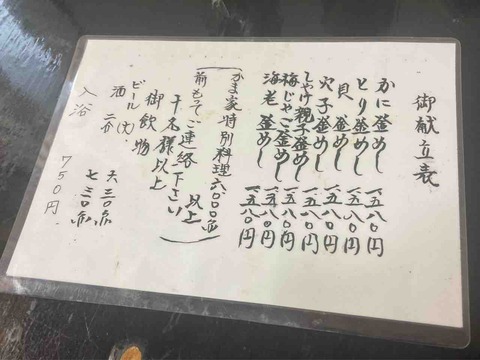 御献立表
かに釜めし 一、五八〇円
とり釜めし 一、五八〇円
貝釜めし 一、五八〇円
穴子釜めし 一、五八〇円
しゃけ親子釜めし 一、五八〇円
梅じゃこ釜めし 一、五八〇円
海老釜めし 一、五八〇円
(かま家特別料理六〇〇〇円以上
前もってご連絡下さい
十名様以上)
御飲物
ビール(大) 六三〇円
酒 七三〇円
入浴 750円